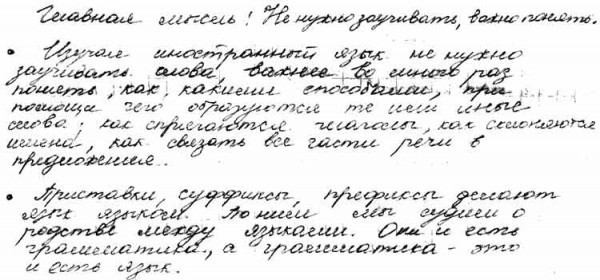 Главная мысль! Не нужно заучивать, важно понять.
• Изучая иностранный язык не нужно
заучивать слова, важнее во много раз
понять, как какими способами, при
помощи чего образуются те или иные
слова; как спрягаются глаголы, как склоняются
имена, как связать все части речи в
предложении.
• Приставки, суффиксы, префиксы делают
язык языком. По ним мы судим о
родстве между языками. Они и есть
грамматика, а грамматика - это
и есть язык.